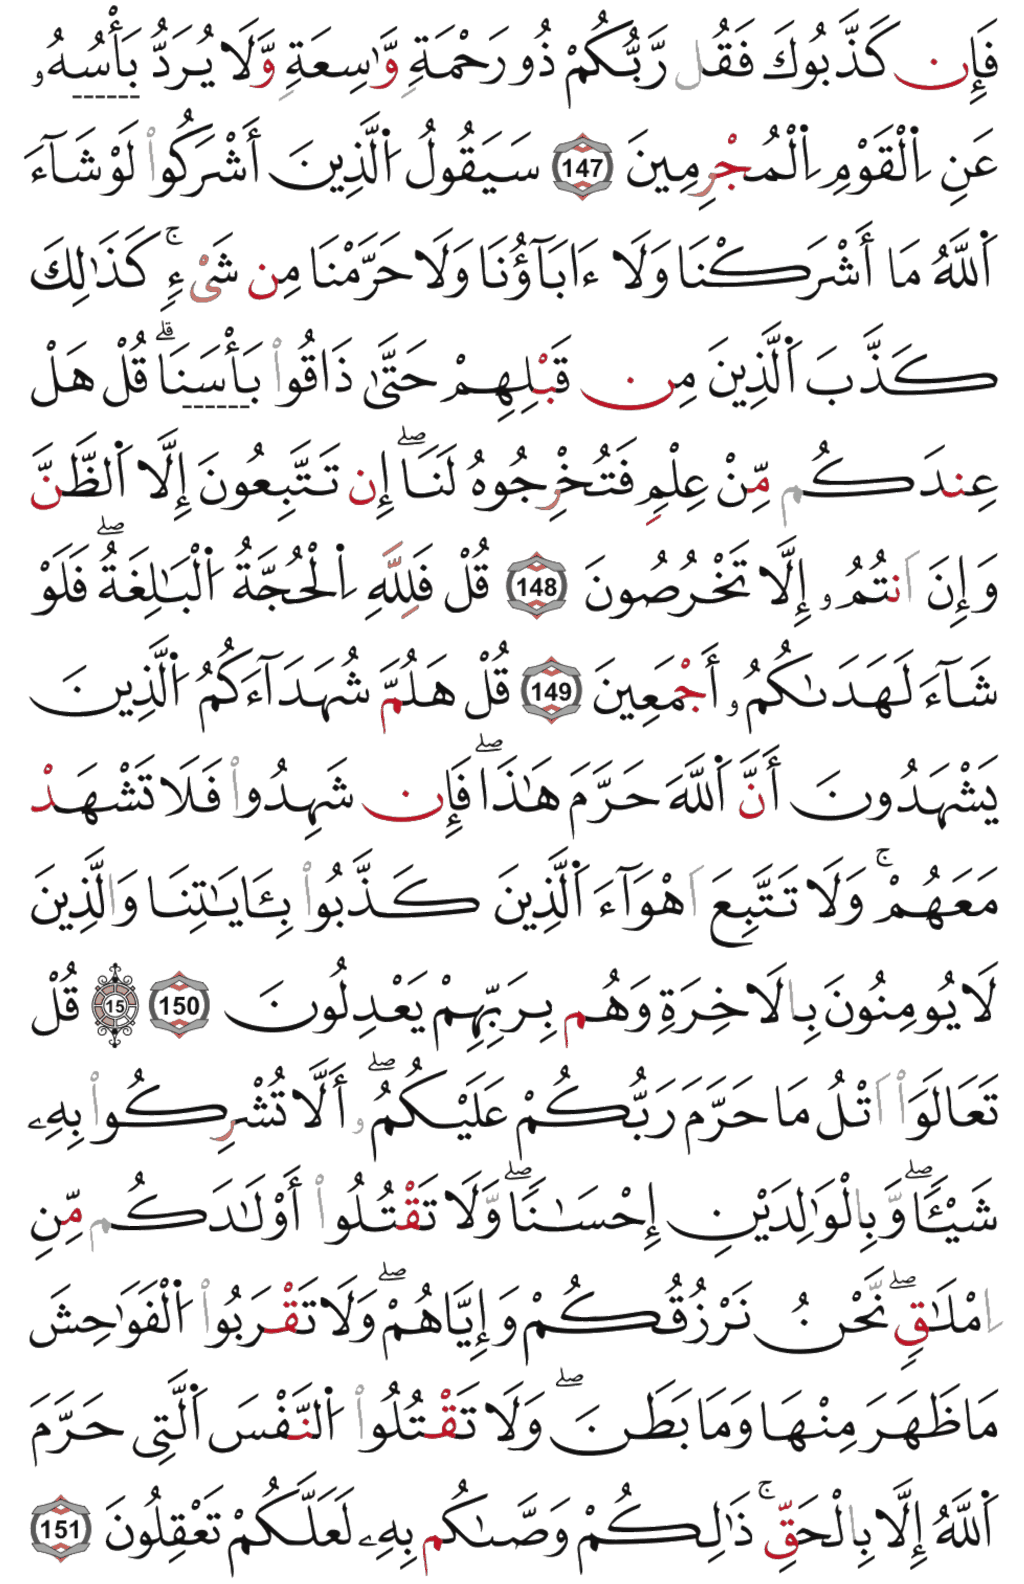 فَإِن كَذَّبُوكَ فَقُل رَّبُّكُمْ ذُو رَحْمَةٍ وَّٰسِعَةٍ وَّلَا يُرَدُّ بَأْسُهُۥ
عَنِ اِ۬لْقَوْمِ اِ۬لْمُجْرِمِينَ 147 سَيَقُولُ اُ۬لَّذِينَ أَشْرَكُواْ لَوْ شَآءَ
اَ۬للَّهُ مَا أَشْرَكْنَا وَلَا ءَابَآؤُنَا وَلَا حَرَّمْنَا مِن شَىْءٍۚ كَذَٰلِكَ
كَذَّبَ اَ۬لَّذِينَ مِن قَبْلِهِمْ حَتَّىٰ ذَاقُواْ بَأْسَنَاۗ قُلْ هَلْ
عِندَكُم مِّنْ عِلْمٍ فَتُخْرِجُوهُ لَنَاۖ إِن تَتَّبِعُونَ إِلَّا اَ۬لظَّنَّ
وَإِنَ اَنتُمُۥ إِلَّا تَخْرُصُونَ 148 قُلْ فَلِلَّهِ اِ۬لْحُجَّةُ اُ۬لْبَٰلِغَةُۖ فَلَوْ
شَآءَ لَهَدَىٰكُمُۥ أَجْمَعِينَ 149 قُلْ هَلُمَّ شُهَدَآءَكُمُ اُ۬لَّذِينَ
يَشْهَدُونَ أَنَّ اَ۬للَّهَ حَرَّمَ هَٰذَاۖ فَإِن شَهِدُواْ فَلَا تَشْهَدْ
مَعَهُمْۚ وَلَا تَتَّبِعَ اَهْوَآءَ اَ۬لَّذِينَ كَذَّبُواْ بِـَٔايَٰتِنَا وَالَّذِينَ
لَا يُومِنُونَ بِالَاخِرَةِ وَهُم بِرَبِّهِمْ يَعْدِلُونَ 150 15 قُلْ
تَعَالَوَاْ اَتْلُ مَا حَرَّمَ رَبُّكُمْ عَلَيْكُمُۥۖ أَلَّا تُشْرِكُواْ بِهِۦ
شَيْـًٔاۖ وَّبِالْوَٰلِدَيْنِ إِحْسَٰنًاۖ وَّلَا تَقْتُلُواْ أَوْلَٰدَكُم مِّنِ
اِمْلَٰقٍۖ نَّحْنُ نَرْزُقُكُمْ وَإِيَّاهُمْۖ وَلَا تَقْرَبُواْ اُ۬لْفَوَٰحِشَ
مَا ظَهَرَ مِنْهَا وَمَا بَطَنَۖ وَلَا تَقْتُلُواْ اُ۬لنَّفْسَ اَ۬لَّتِى حَرَّمَ
اَ۬للَّهُ إِلَّا بِالْحَقِّۚ ذَٰلِكُمْ وَصَّىٰكُم بِهِۦ لَعَلَّكُمْ تَعْقِلُونَ 151